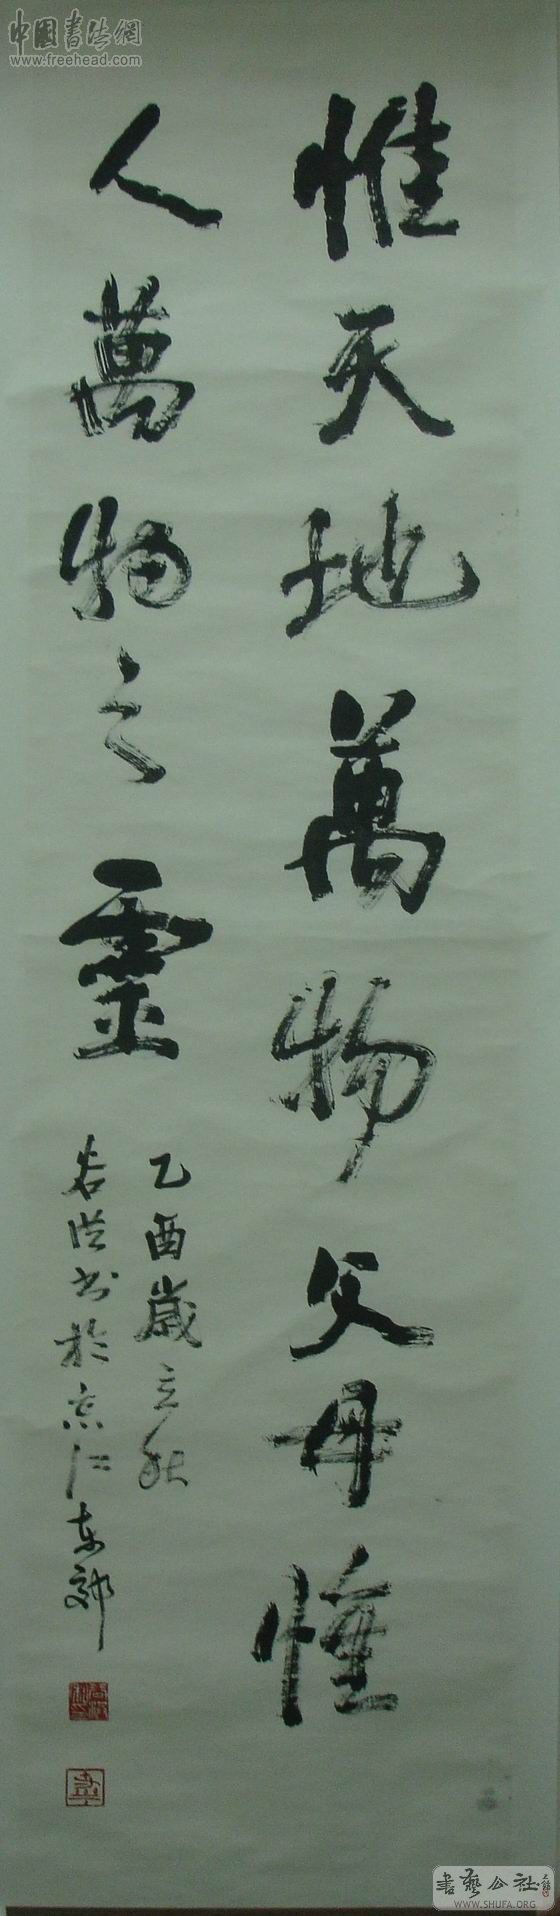 中国書法網
www.freehead.com
惟天地萬物父母惟
人萬物之靈
乙酉歲立秋
書於京江东郊
書藝公社
WWW.SHUFA.ORG